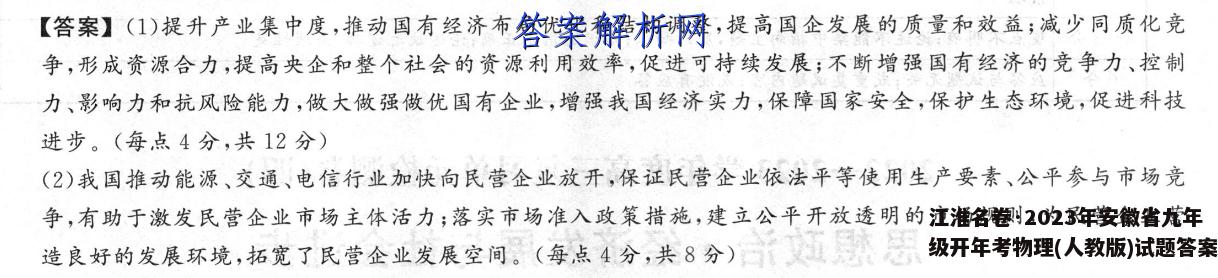 【答案】(1)提升产业集中度,推动国有经济布 优 和结 调整,提高国企发展的质量和效益;减少同质化竞
答案解析网
争,形成资源合力,提高央企和整个社会的资源利用效率,促进可持续发展;不断增强国有经济的竞争力、控制
力、影响力和抗风险能力,做大做强做优国有企业,增强我国经济实力,保障国家安全,保护生态环境,促进科技
进步。(每点 4 分,共 12 分)
(2)我国推动能源、交通、电信行业加快向民营企业放开,保证民营企业依法平等使用生产要素、公平参与市场竞
争,有助于激发民营企业市场主体活力;落实市场准入政策措施,建立公平开放透明的
江淮名卷·2023年安徽省九年
造良好的发展环境,拓宽了民营企业发展空间。(每点 4 分,共 8 分)
级开年考物理(人教版)试题答案